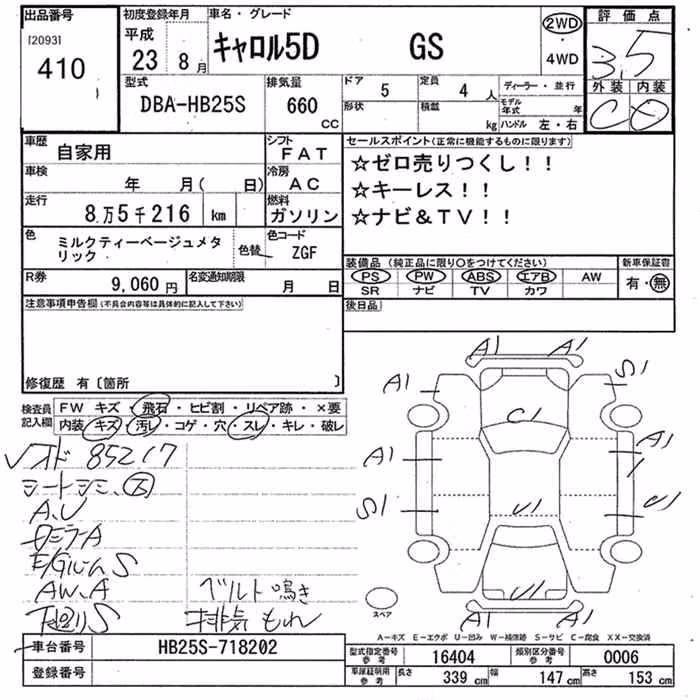 出品番号
[2093]
410
初度登録年月
平成
23 8月
車名・グレード
キャロル5D GS
2WD
4WD
評価点
3.5
外装 内装
C D
型式
DBA-HB25S
排気量
660
CC
ドア
5
定員
4人
形状
積載
kg
ディーラー・並行
モデル年式 年
ハンドル 左・右
車歴
自家用
シフト
FAT
車検
年 月( 日)
冷房
AC
走行
8万5千216 km
燃料
ガソリン
色
ミルクティーベージュメタリック
色替
色コード
ZGF
R券
9,060円
名変通知期限
月 日
セールスポイント(正常に機能するものに限ります)
☆ゼロ売りつくし!!
☆キーレス!!
☆ナビ&TV!!
装備品(純正品に限り〇をつけてください)
PS PW ABS エアB AW
SR ナビ TV カワ
新車保証書
有・無
後日品
注意事項申告欄(不具合内容等は具体的に記入して下さい)
修復歴 有〔箇所 〕
検査員記入欄
FW キズ・飛石・ヒビ割・リペア跡・×要
内装・キズ・汚レ・コゲ・穴・スレ・キレ・破レ
85217
シートシミ
A,U
E/Gルーム S
AW.A
ベルト鳴き
下廻りS
排気もれ
A1 A1
A1 S1
C1
A1 A1
S1 U1
U1
U1
A1 A1
スペア
A-キズ E-エクボ U-凹み W-補修跡 S-サビ C-腐食 XX-交換済
車台番号
HB25S-718202
登録番号
型式指定番号
参考
16404
類別区分番号
参考
0006
車庫証明用
参考
長さ 339 cm
幅 147 cm
高さ 153 cm